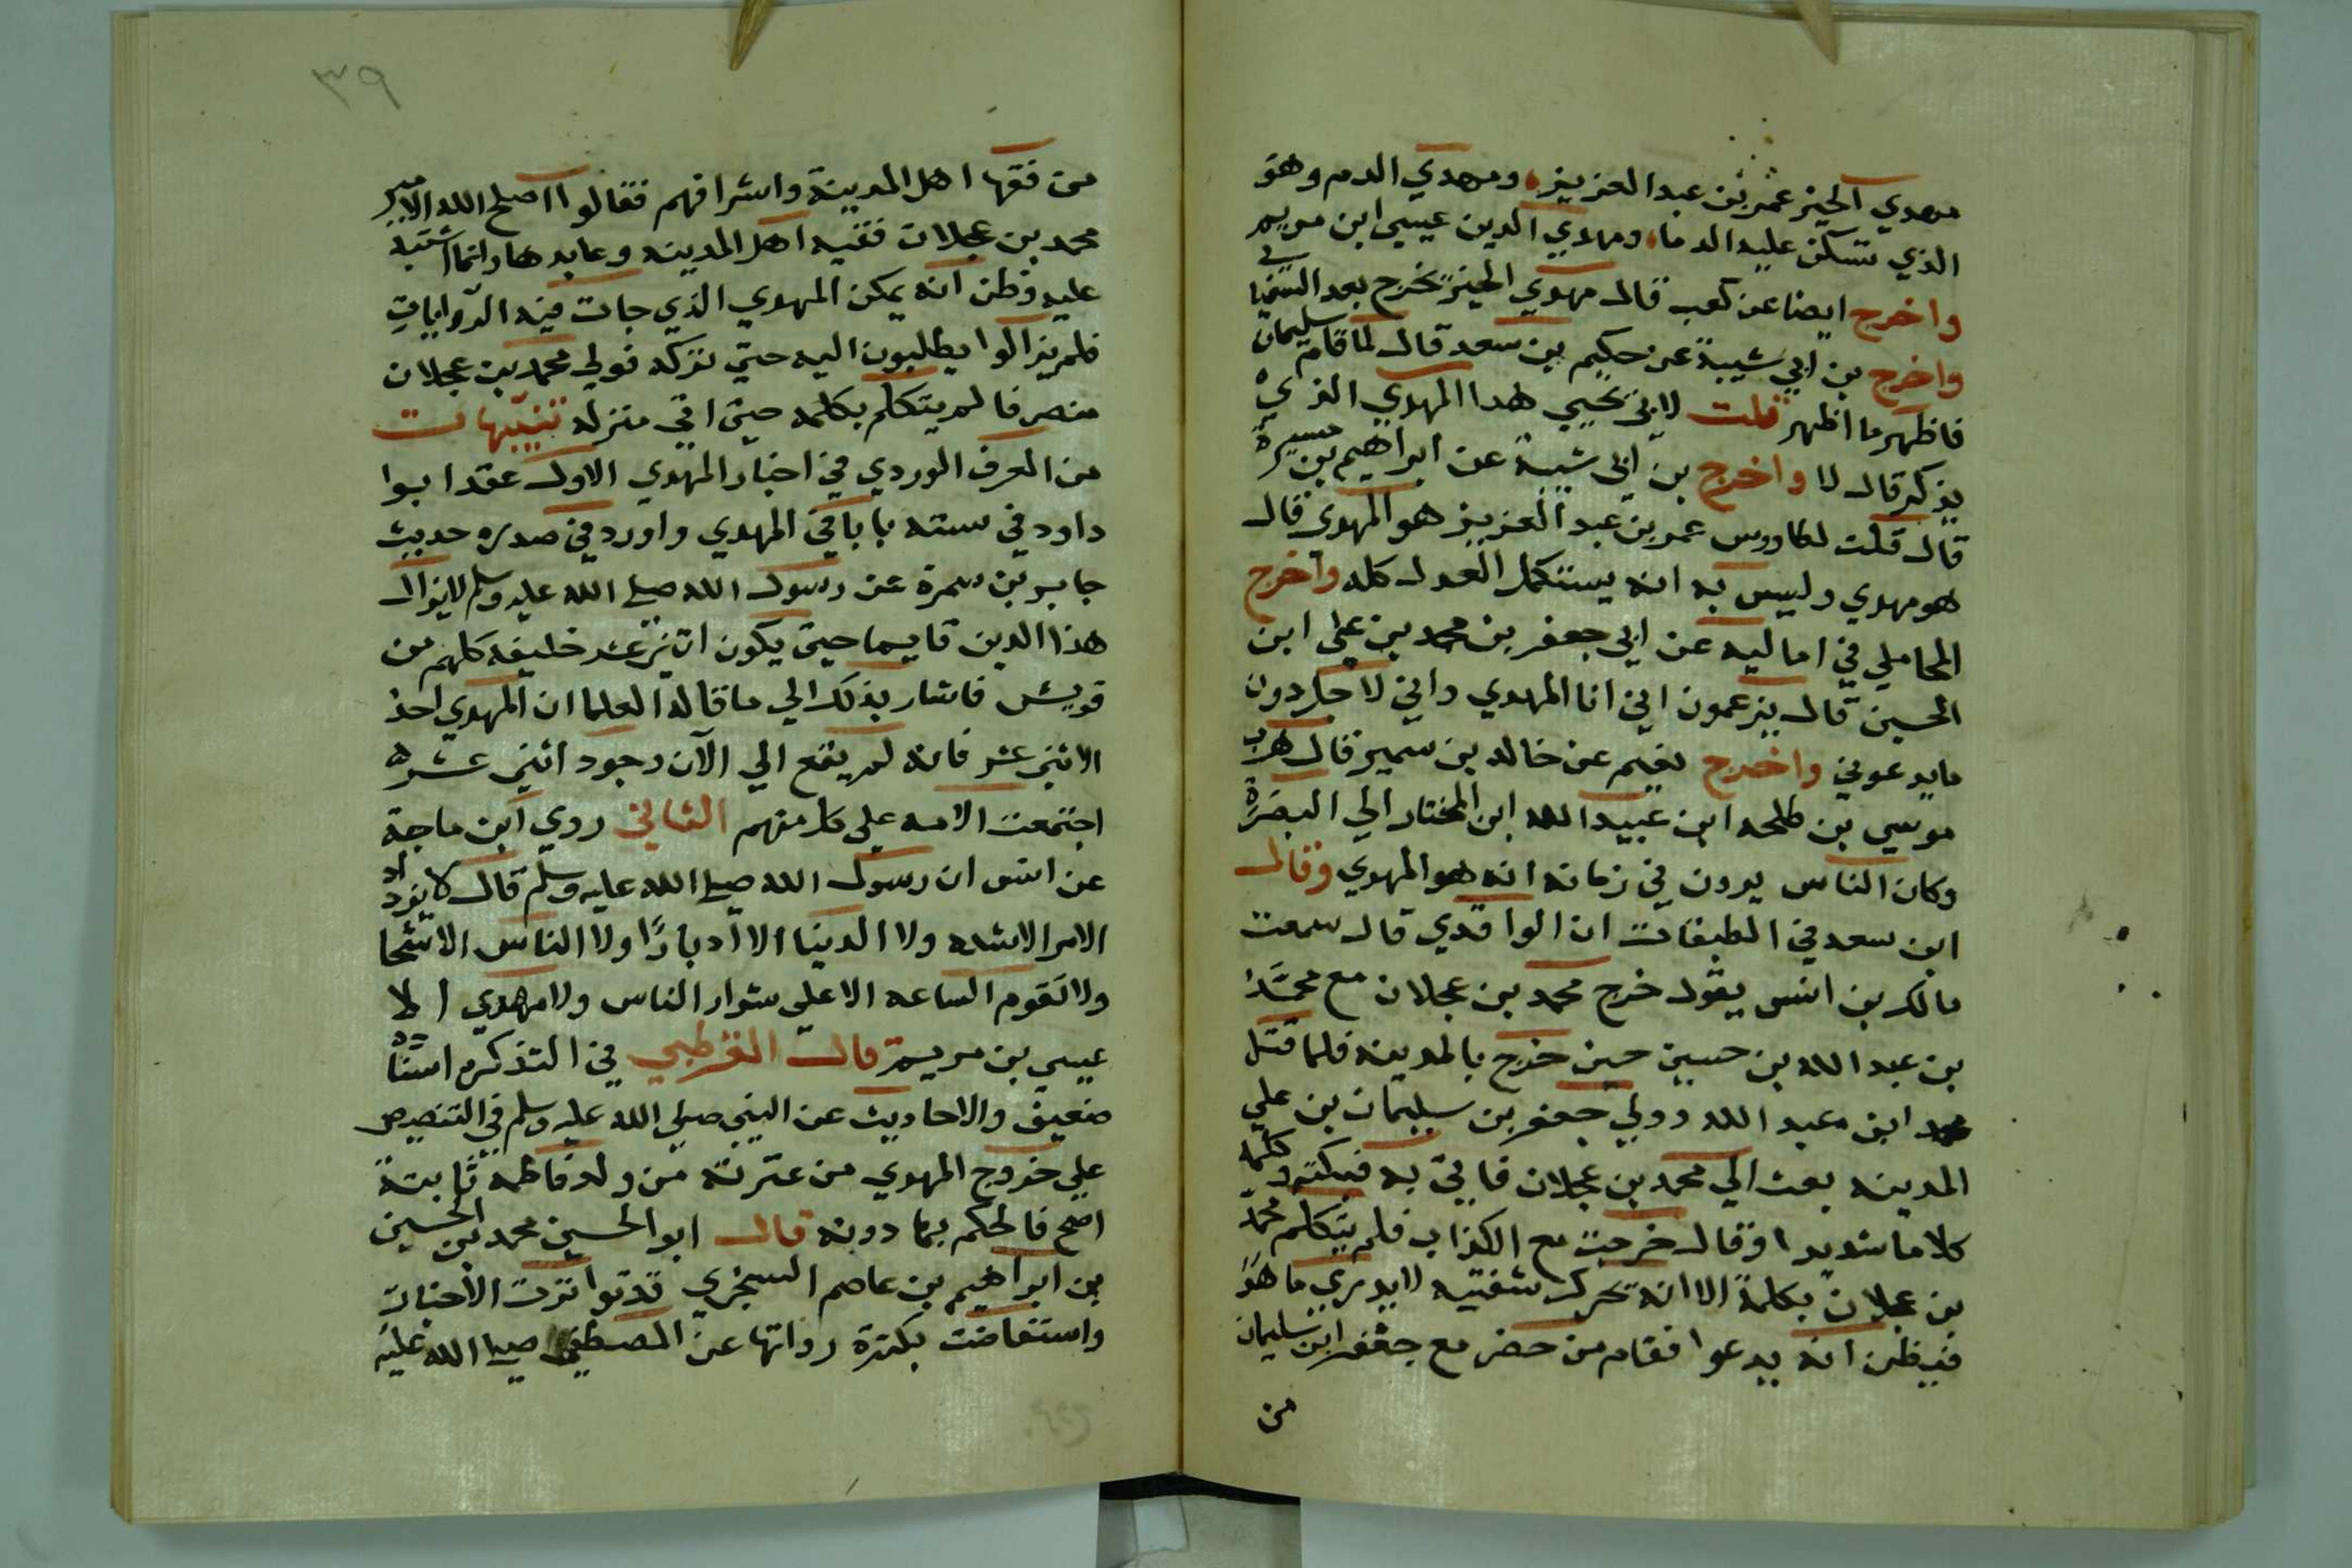 مهدي الخير عمر بن عبد العزيز ومهدي الدم وهو
الذي تسكن عليه الدما ومهدي الدين عيسي ابن مريم
واخرج ايضا عن كعب قال مهدي الخير يخرج بعد السفياني
واخرج بن ابي شيبة عن حكيم بن سعد قال لما قام سليمان
فاظهر ما اظهر قلت لابي يحيي هدا المهدي الذي
يذكر قال لا واخرج بن ابي شيبة عن ابراهيم بن ميسرة
قال قلت لطاووس عمر بن عبد العزيز هو المهدي قال
هو مهدي وليس به انه يستكمل العدل كله واخرج
المحاملي في اماليه عن ابي جعفر بن محمد بن علي ابن
الحسين قال يزعمون اني انا المهدي واني لا
ما يدعوني واخرج نعيم عن خالد بن سمير قال هرب
موسي بن طلحه ابن عبيد الله ابن المختار الي البصرة
وكان الناس يرون في زمانه انه هو المهدي وقال
ابن سعد في الطبقات ان الواقدي قال سمعت
مالك بن انس يقول خرج محمد بن عجلان مع محمد
بن عبد الله بن حسين حين خرج بالمدينه فلما قتل
محمد ابن عبد الله وولي جعفر بن سليمان بن علي
المدينه بعث الي محمد بن عجلان فاتي به فبكته وكلمه
كلاما شديدا وقال خرجت مع الكذاب فلم يتكلم محمد
بن عجلان بكلمة الا انه تحرك شفتيه لا يدري ما هو
فيظن انه يدعوا فقام من حضر مع جعفر ابن سليمان
من
٣٩
من فقها اهل المدينة واشرافهم فقالوا اصلح الله الامير
محمد بن عجلان فقيه اهل المدينه وعابدها وانما اشتبه
عليه وظن انه يمكن المهدي الذي جات فيه الروايات
فلم يزالوا يطلبون اليه حتي تركه فولي محمد بن عجلان
منصرفا لم يتكلم بكلمه حتي اتي منزله تنبيهات
من العرف الوردي في اخبار المهدي الاول عقد ابوا
داود في سننه بابا في المهدي واورد في صدره حديث
جابر بن سمرة عن رسول الله صلي الله عليه وسلم لا يزال
هذا الدين قايما حتي يكون اثني عشر خليفه كلهم من
قريش فاشار بذلك الي ما قاله العلما ان المهدي احد
الاثني عشر فانه لم يقع الي الآن وجود اثني عشره
اجتمعت الامه علي كل منهم الثاني روي ابن ماجة
عن انس ان رسول الله صلي الله عليه وسلم قال لا يزداد
الامر الا شده ولا الدنيا الا ادبارًا ولا الناس الا شحا
ولا تقوم الساعه الا علي شرار الناس ولا مهدي الا
عيسي بن مريم قال القرطبي في التذكره اسناده
ضعيف والاحاديث عن النبي صلي الله عليه وسلم في التنصيص
علي خروج المهدي من عترته من ولد فاطمه ثابتة
اصح فالحكم بها دونه قال ابو الحسين محمد بن الحسين
بن ابراهيم بن عاصم السنجري قد تواترت الاخبار
واستفاضت بكثرة رواتها عن المصطفي صلي الله عليه